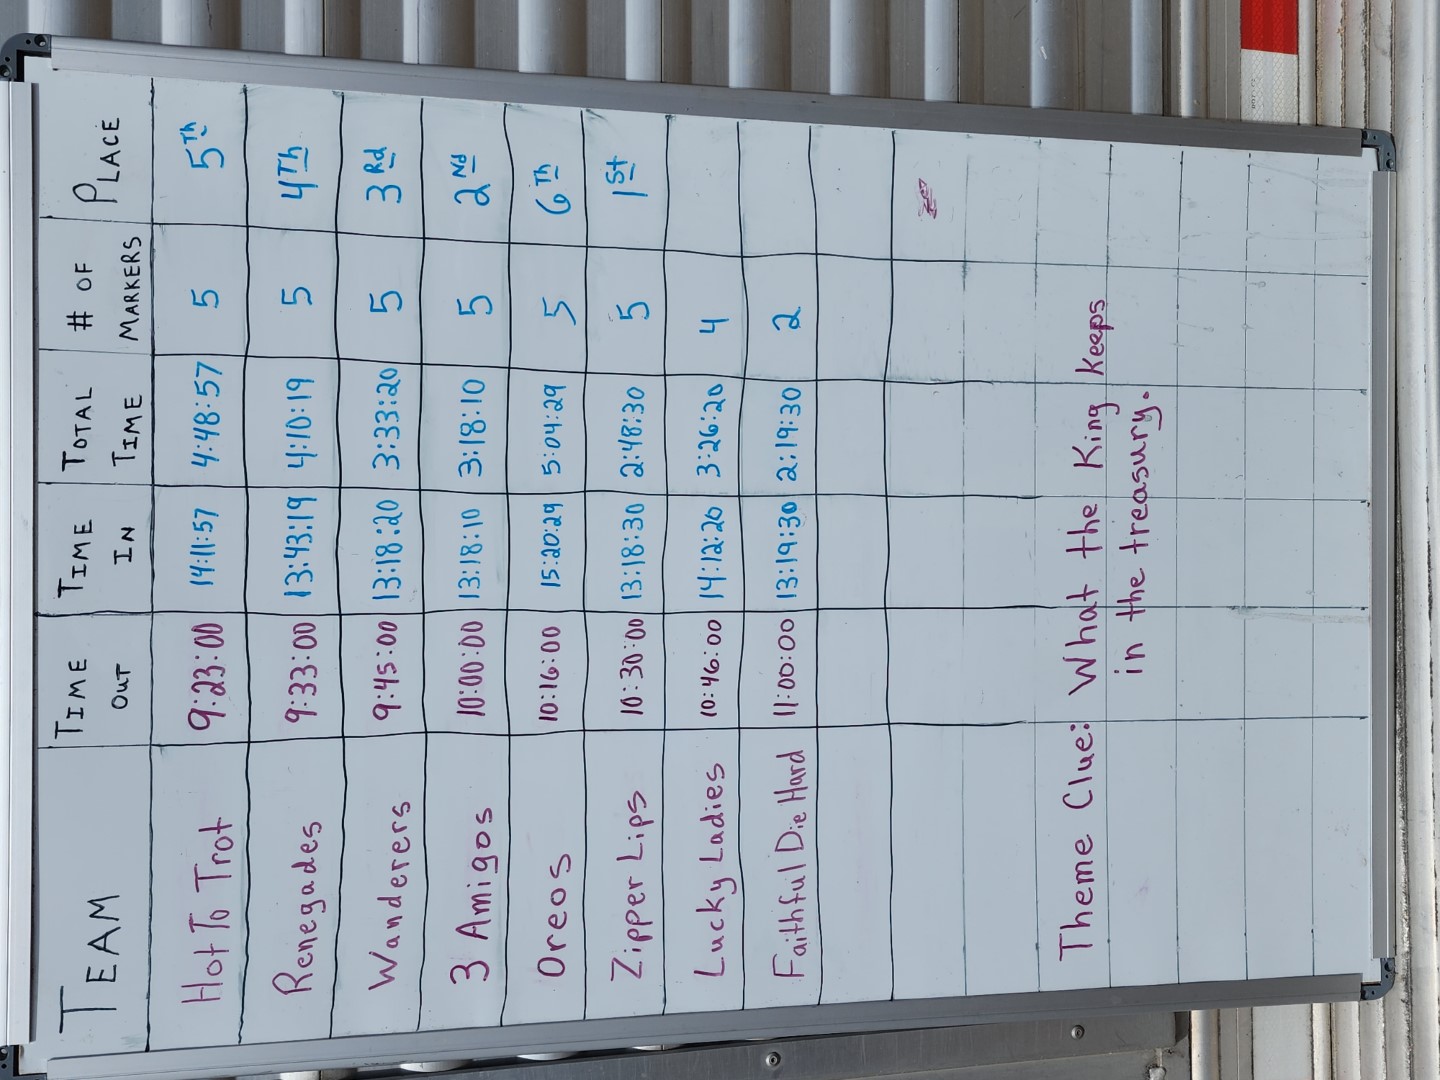 TEAM TIME OUT TIME IN TOTAL TIME # OF MARKERS PLACE
Hot To Trot 9:23:00 14:11:57 4:48:57 5 5Th
Renegades 9:33:00 13:43:19 4:10:19 5 4Th
Wanderers 9:45:00 13:18:20 3:33:20 5 3Rd
3 Amigos 10:00:00 13:18:10 3:18:10 5 2Nd
Oreos 10:16:00 15:20:29 5:04:29 5 6Th
Zipper Lips 10:30:00 13:18:30 2:48:30 5 1St
Lucky Ladies 10:46:00 14:12:20 3:26:20 4
Faithful Die Hard 11:00:00 13:19:30 2:19:30 2
Theme Clue: What the King keeps
in the treasury.